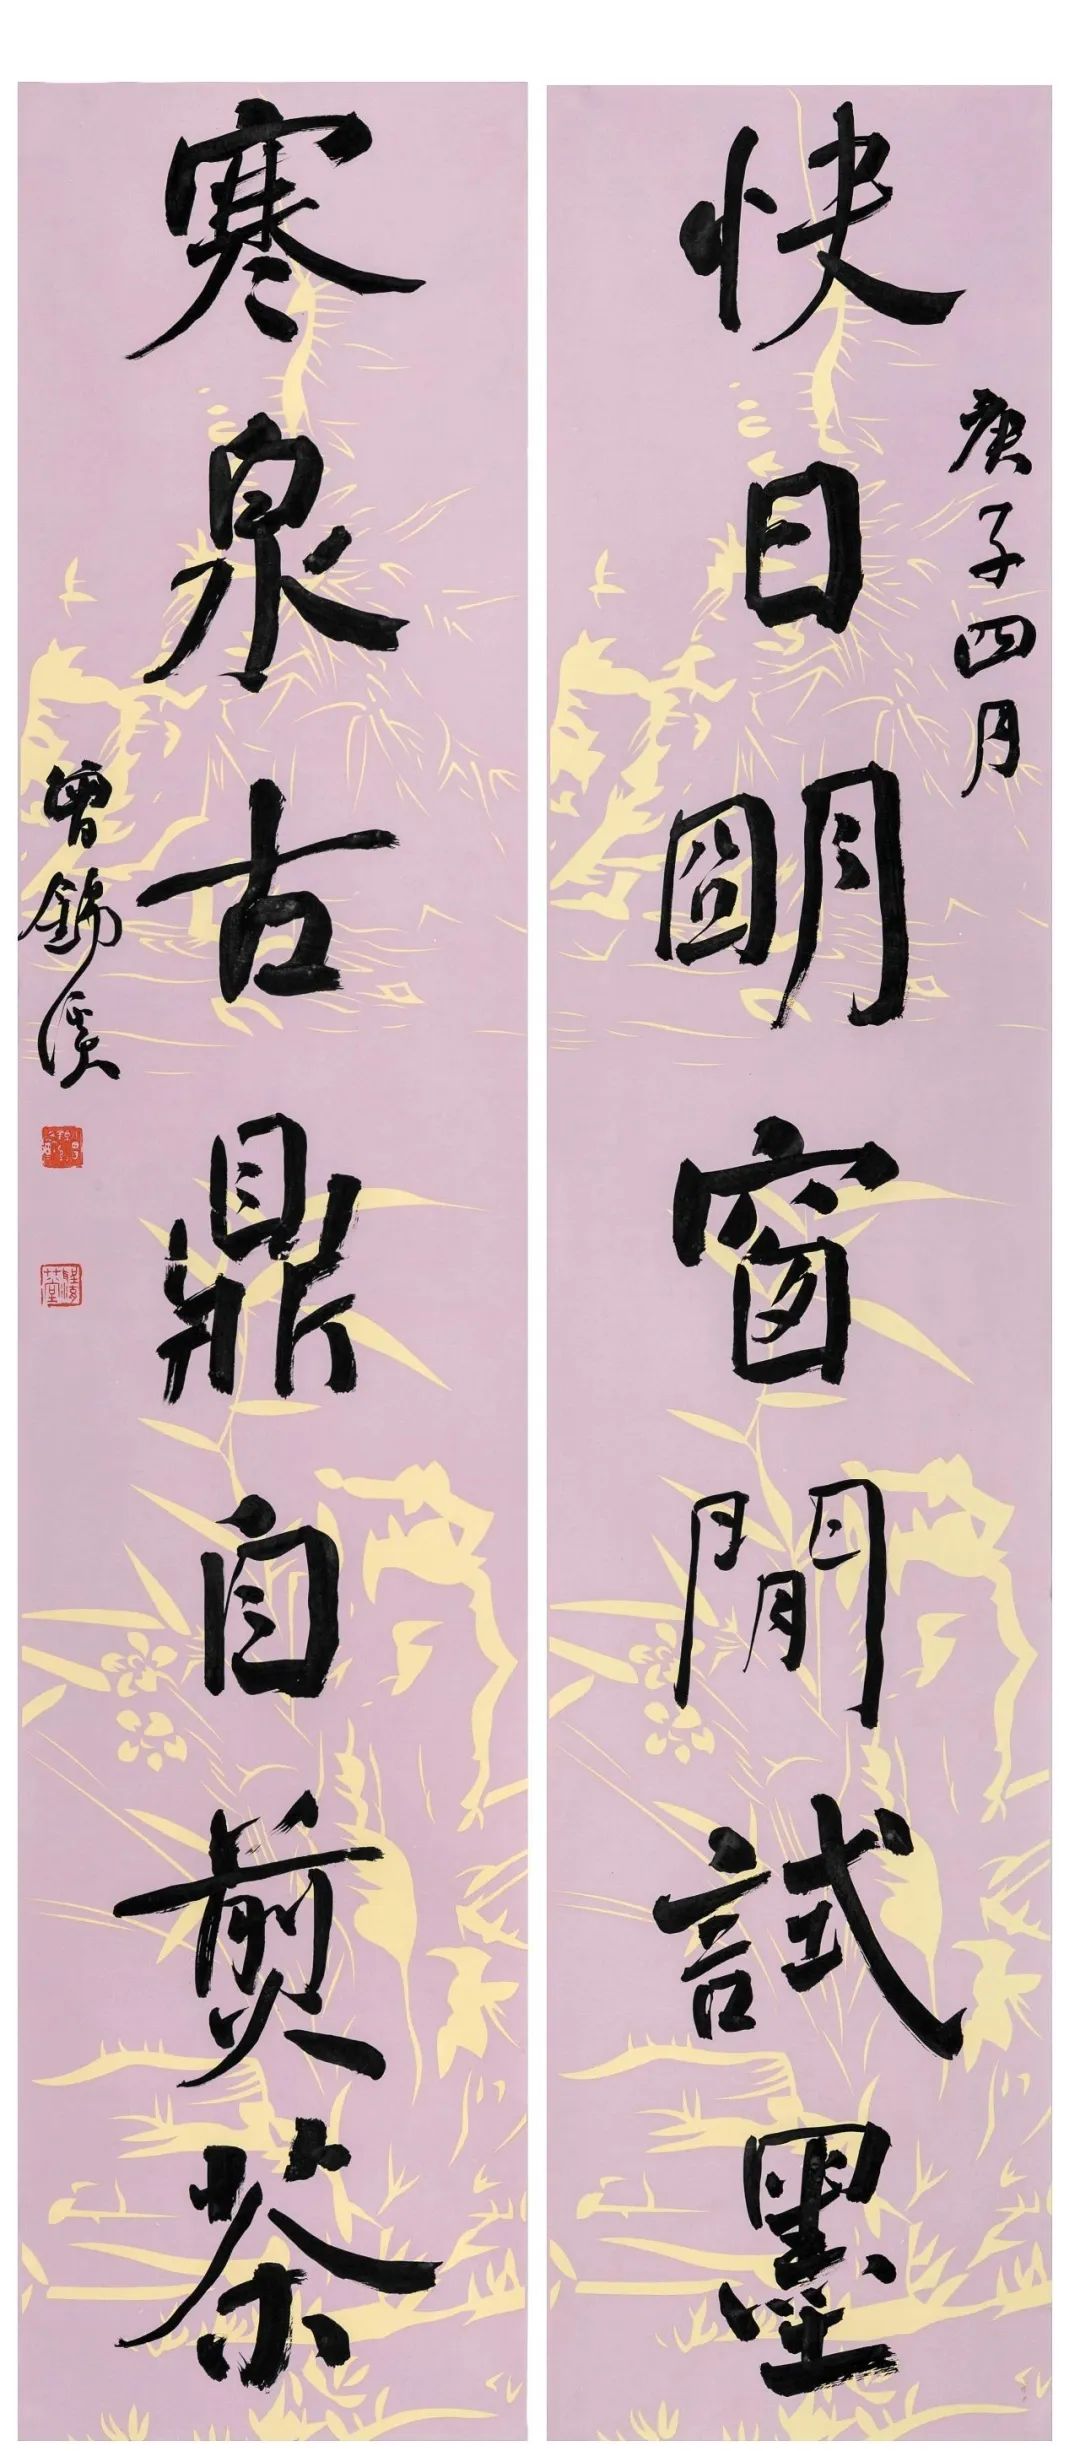 快日明窗閒試墨
庚子四月
寒泉古鼎自煎茶
曾錦溪